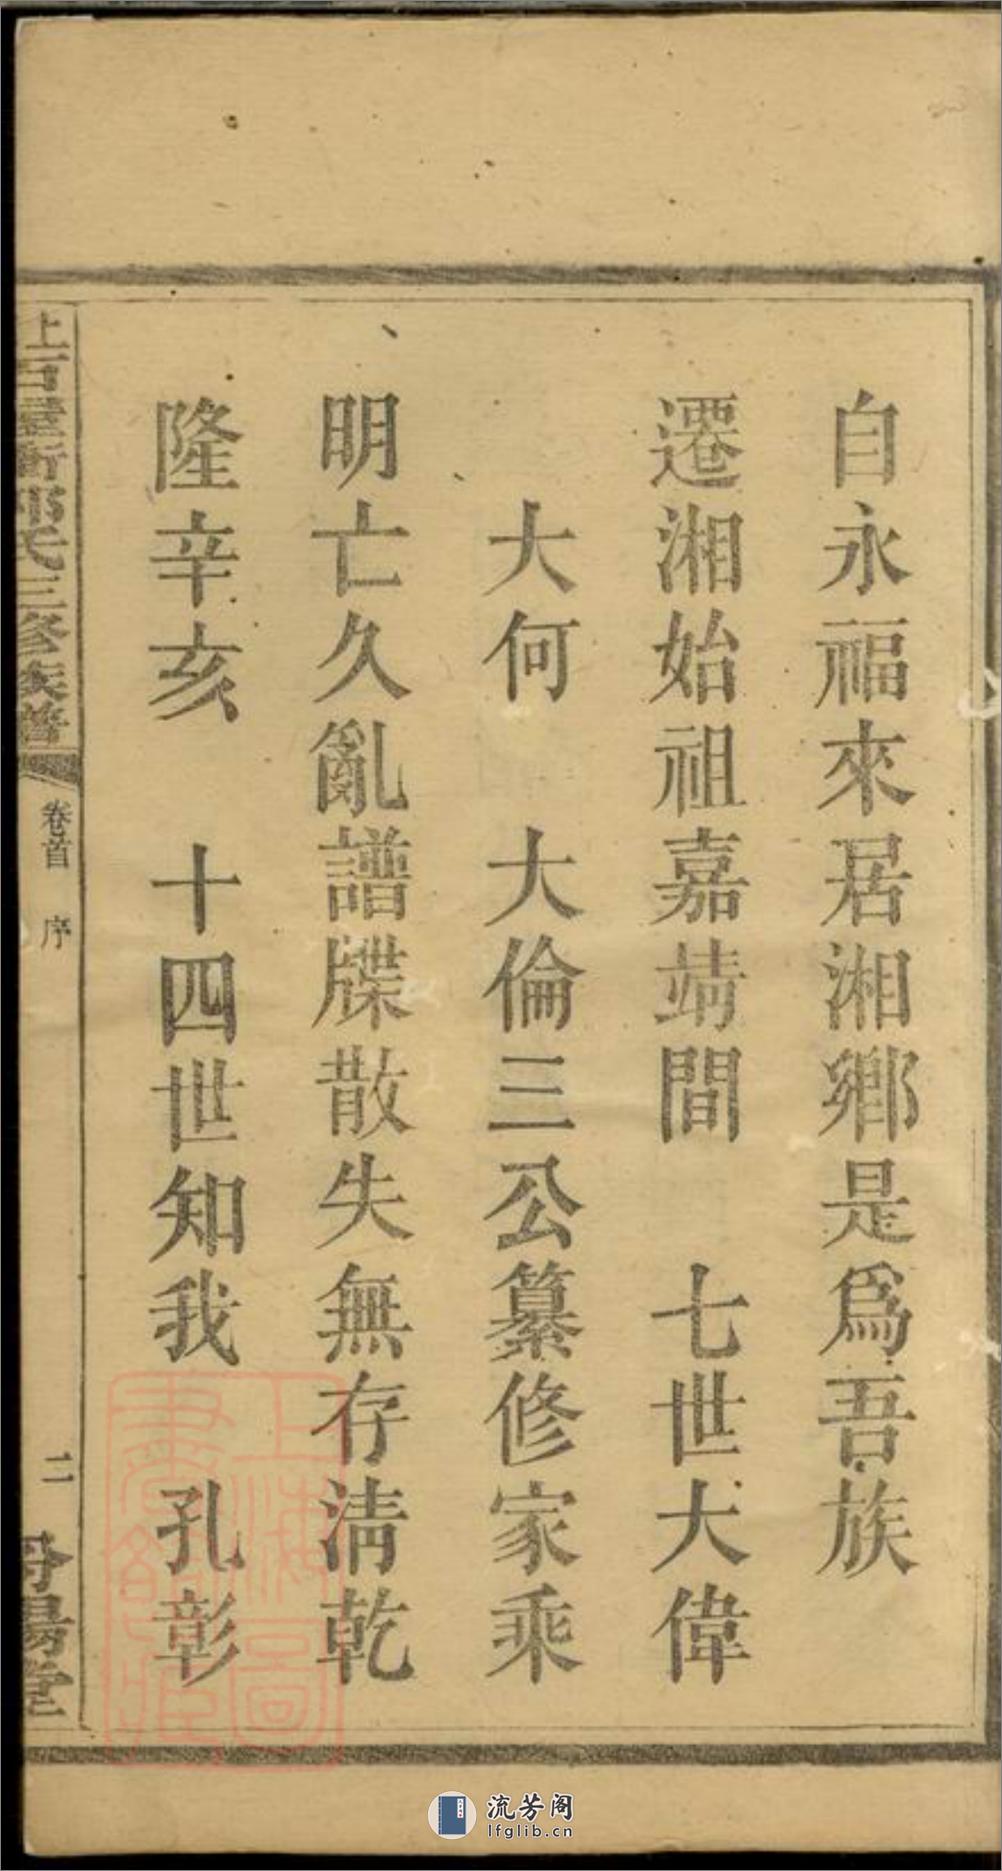 自永福來居湘鄉是爲吾族
遷湘始祖嘉靖間 七世大偉
大何 大倫三公纂修家乘
明亡久亂譜牒散失無存淸乾
隆辛亥 十四世知我 孔彰
氏三修族譜
卷首 序
二
上海圖書館藏
流芳阁
lfglib.cn